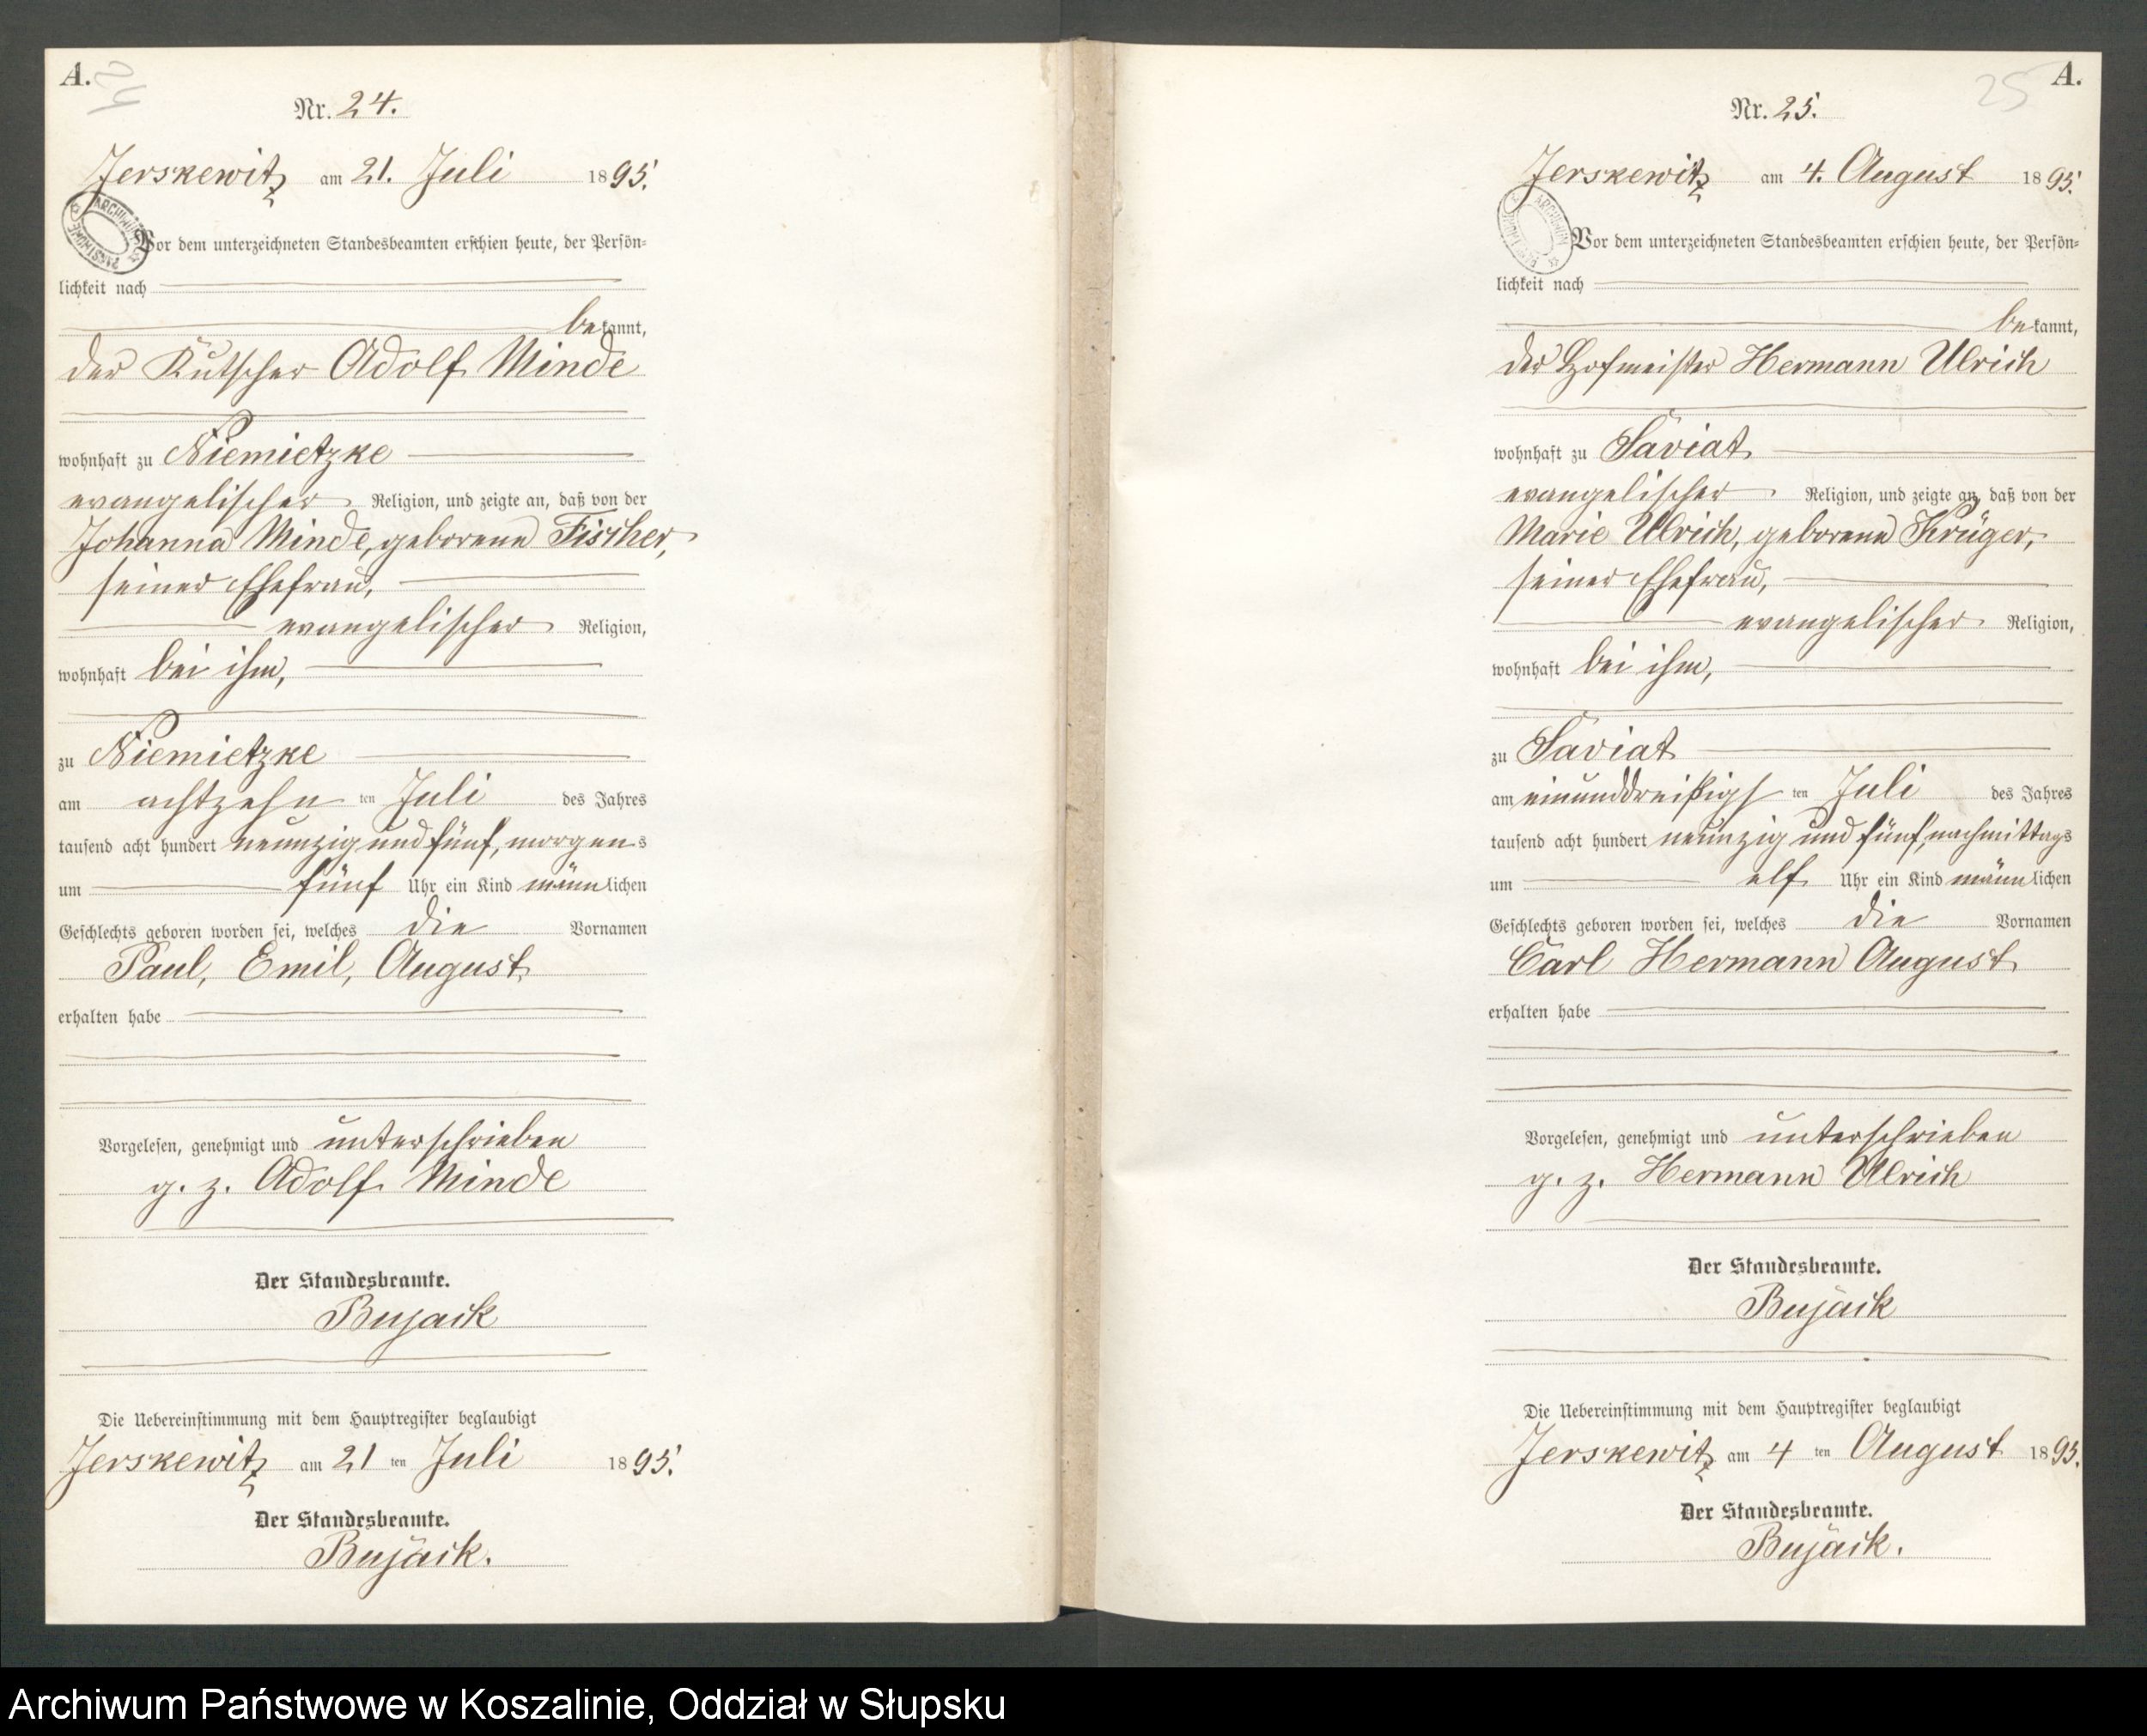 A.
24
Nr. 24.
Jerskewitz am 21. Juli 1895.
Vor dem unterzeichneten Standesbeamten erschien heute, der Persön-
lichkeit nach
bekannt,
der Kutscher Adolf Minde
wohnhaft zu Niemietzke
evangelischer Religion, und zeigte an, daß von der
Johanna Minde, geborene Fischer,
seiner Ehefrau,
evangelischer Religion,
wohnhaft bei ihm,
zu Niemietzke
am achtzehn ten Juli des Jahres
tausend acht hundert neunzig und fünf, morgens
um fünf Uhr ein Kind männlichen
Geschlechts geboren worden sei, welches die Vornamen
Paul, Emil, August
erhalten habe
Vorgelesen, genehmigt und unterschrieben
g. z. Adolf Minde
Der Standesbeamte.
Bujack
Die Uebereinstimmung mit dem Hauptregister beglaubigt
Jerskewitz am 21 ten Juli 1895.
Der Standesbeamte.
Bujack.
A.
25
Nr. 25.
Jerskewitz am 4. August 1895.
Vor dem unterzeichneten Standesbeamten erschien heute, der Persön-
lichkeit nach
bekannt,
der Hofmeister Hermann Ulrich
wohnhaft zu Saviat
evangelischer Religion, und zeigte an, daß von der
Marie Ulrich, geborene Krüger,
seiner Ehefrau,
evangelischer Religion,
wohnhaft bei ihm,
zu Saviat
am einunddreißigs ten Juli des Jahres
tausend acht hundert neunzig und fünf, nachmittags
um elf Uhr ein Kind männlichen
Geschlechts geboren worden sei, welches die Vornamen
Carl Hermann August
erhalten habe
Vorgelesen, genehmigt und unterschrieben
g. z. Hermann Ulrich
Der Standesbeamte.
Bujack
Die Uebereinstimmung mit dem Hauptregister beglaubigt
Jerskewitz am 4 ten August 1895.
Der Standesbeamte.
Bujack.
Archiwum Państwowe w Koszalinie, Oddział w Słupsku